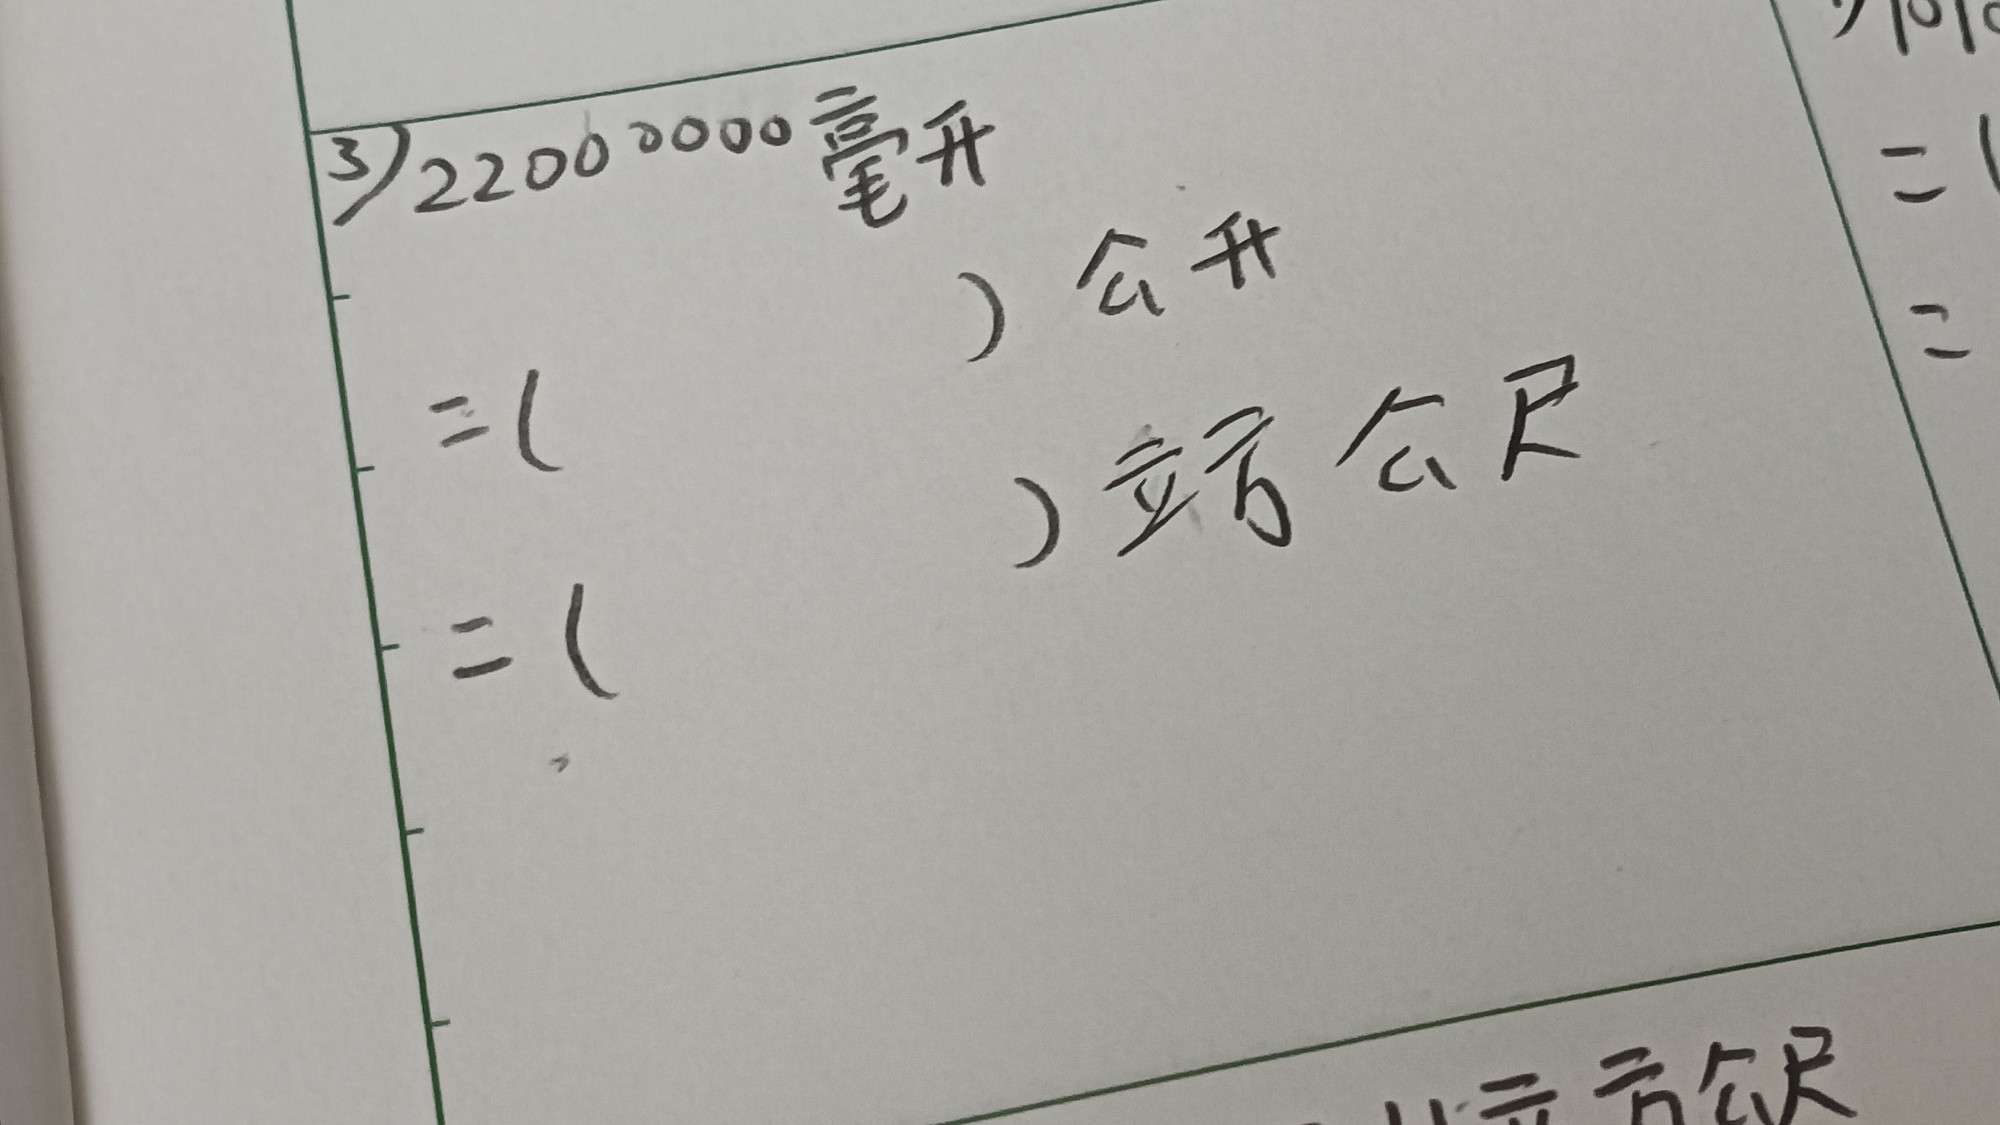 3) 22000000毫升
=( )公升
=( )立方公尺
= (
=
立方公尺